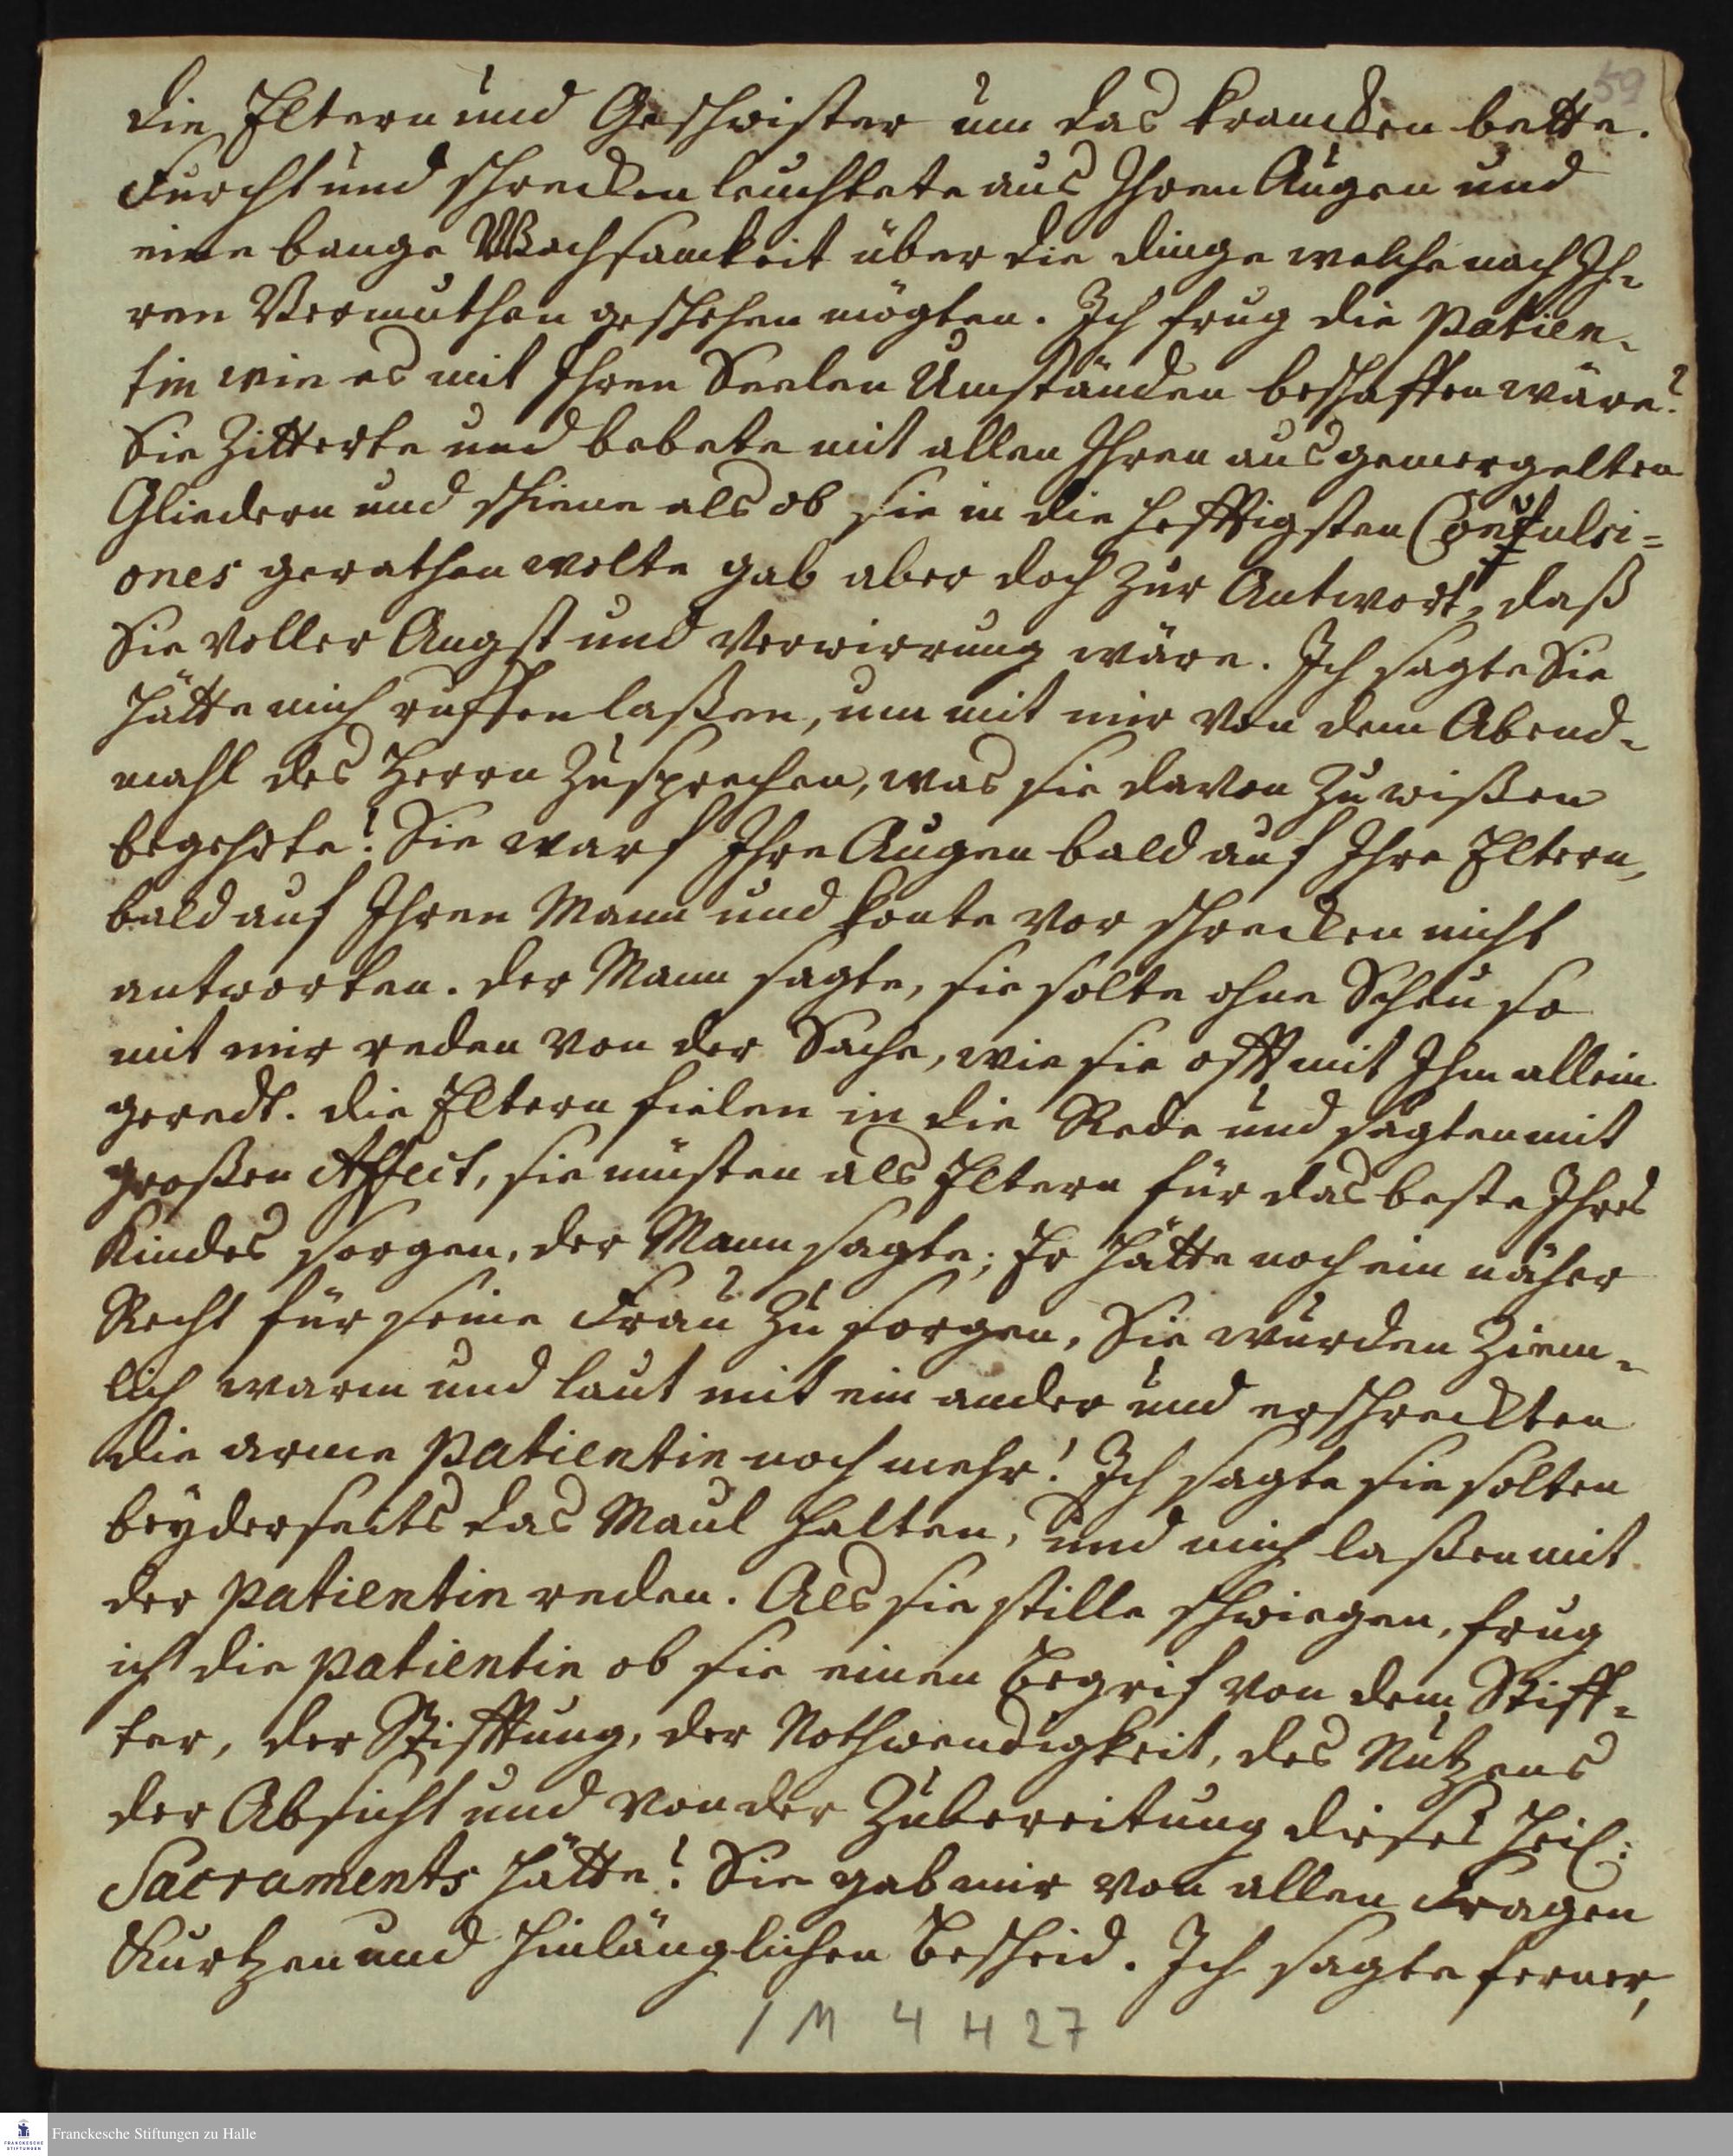 59
die Eltern und Geschwister um das krancken bette.
Furcht und schrecken leuchtete aus Ihren Augen und
eine bange Wachsamkeit über die dinge welche nach Ih-
ren Vermuthen geschehen mögten. Ich frug die Patien-
tin wie es mit Ihren Seelen Umständen beschaffen wäre?
Sie Zitterte und bebete mit allen Ihren ausgemergelten
Gliedern und schiene als ob sie in die hefftigsten Convulsi=
ones gerathen wolte gab aber doch zur Antwort, daß
Sie voller Angst und Verwirrung wäre. Ich sagte Sie
hätte mich ruffen laßen, um mit mir von dem Abend-
mahl des Herrn zu sprechen, was sie davon zu wißen
begehrte? Sie warf Ihre Augen bald auf Ihre Eltern,
bald auf Ihren Mann und konte vor schrecken nicht
antworten. der Mann sagte, sie solte ohne Scheu so
mit mir reden von der Sache, wie sie offt mit Ihm allein
geredt. die Eltern fielen in die Rede und sagten mit
großen Affect, sie müsten als Eltern für das beste Ihres
Kindes sorgen, der Mann sagte; Er hätte noch ein näher
Recht für seine Frau zu sorgen, Sie wurden Ziem-
lich warm und laut mit ein ander und erschreckten
die arme Patientin noch mehr! Ich sagte sie solten
beyderseits das Maul halten, und mich laßen mit
der Patientin reden. Als sie stille schwiegen, frug
ich die Patientin ob sie einen Begrif von dem Stiff-
ter, der Stifftung, der Nothwendigkeit, des Nutzens
der Absicht und von der Zubereitung dieses Heil:
Sacraments hätte? Sie gab mir von allen Fragen
Kurtzen und hinlänglichen Bescheid. Ich sagte ferner,
1 M 4 H 27
FRANCKESCHE STIFTUNGEN
Franckesche Stiftungen zu Halle